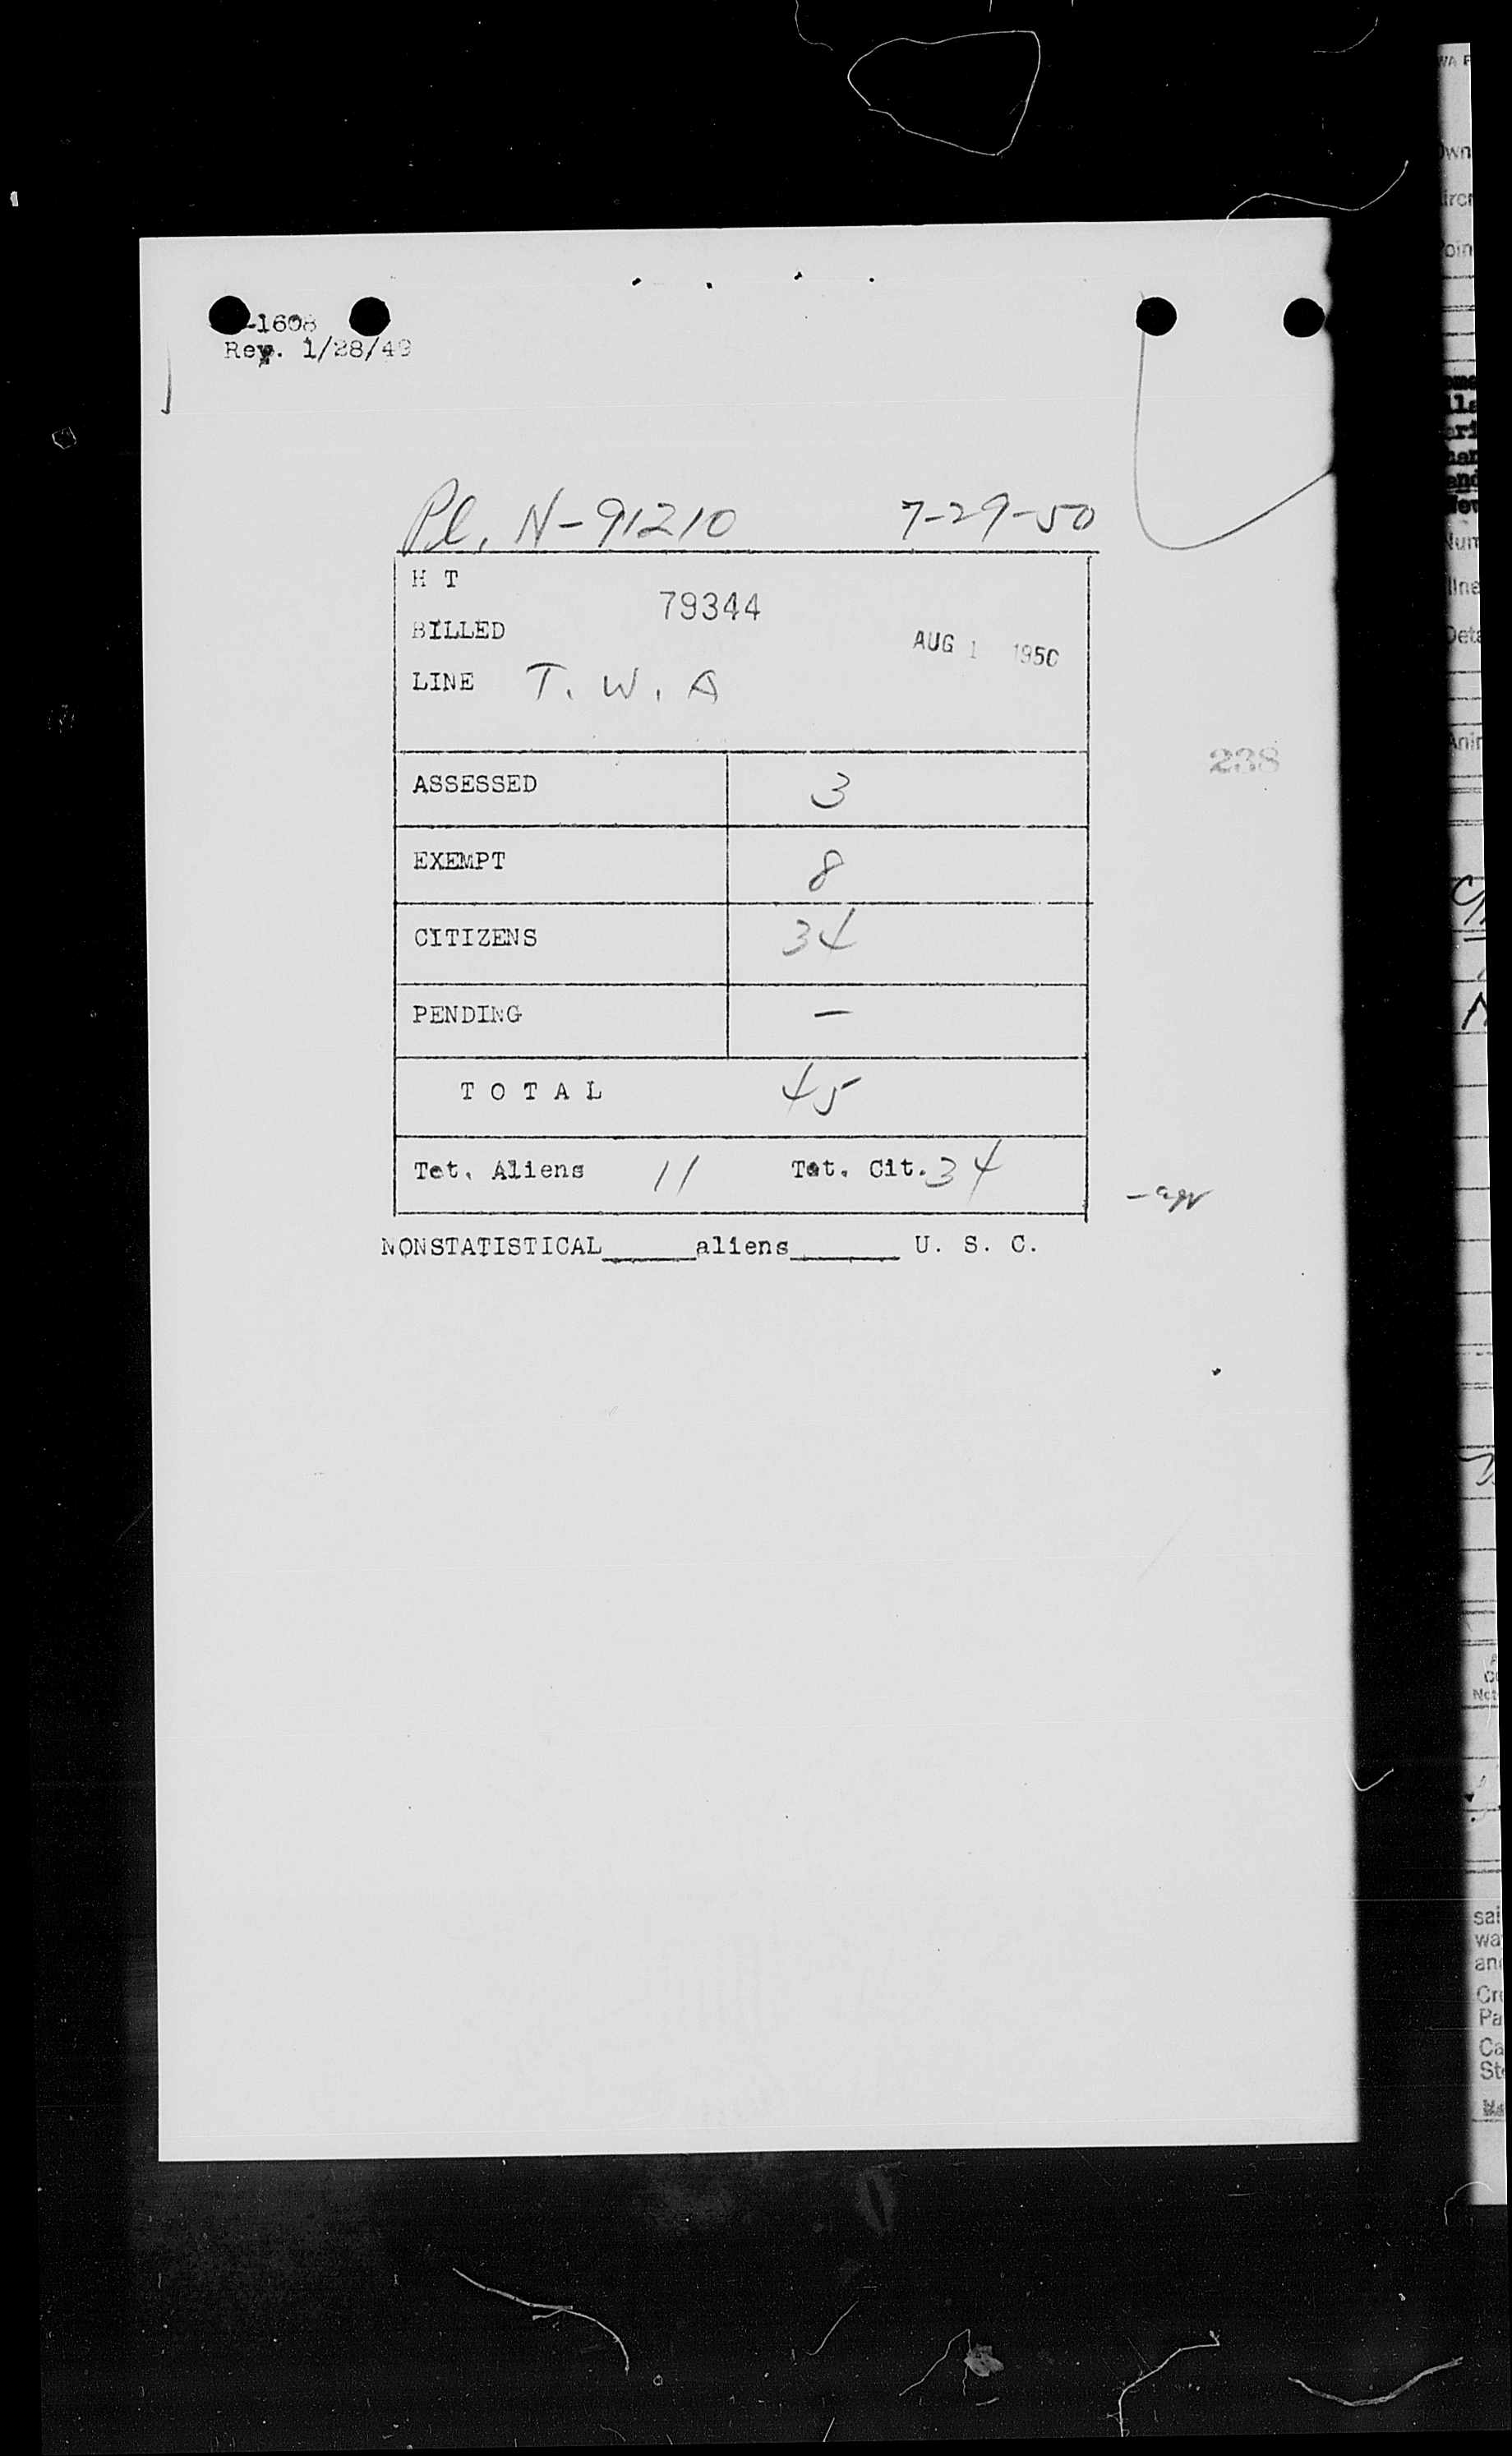 -1608
Rev. 1/28/49
Pl. N-91210 7-29-50
H T
79344
BILLED
AUG 1 1950
LINE T. W. A
ASSESSED 3
238
EXEMPT 8
CITIZENS 34
PENDING —
T O T A L 45
Tot. Aliens 11 Tot. Cit. 34
NONSTATISTICAL______aliens_______ U. S. C.